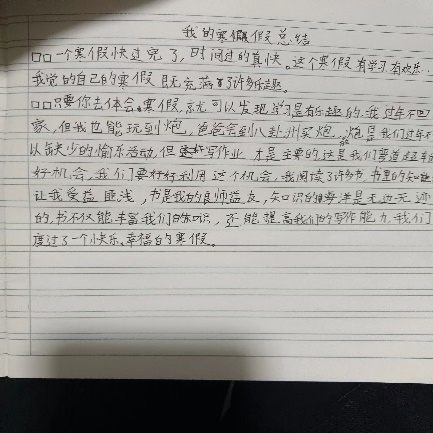 我的寒假假总结
□□一个寒假快过完了,时间过的真快。这个寒假有学习有欢乐,
我觉的自己的寒假既充满了许多乐趣。
□□只要你去体会,寒假就可以发现学习是有乐趣的,我过年不回
家,但我也能玩到炮,爸爸会到八卦洲买炮,炮是我们过年不
以缺少的愉乐活动,但写作业才是主要的,这是我们弯道超车的
好机会,我们要好好利用这个机会,我阅读了许多书,书里的知识
让我受益匪浅,书是我的良师益友,知识的海洋是无边无迹
的,书不仅能丰富我们的知识,还能提高我们的写作能力,我们
度过了一个快乐、幸福的寒假。